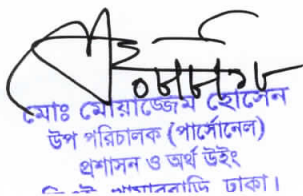 মোঃ মোয়াজ্জেম হোসেন
উপ পরিচালক (পার্সোনেল)
প্রশাসন ও অর্থ উইং
খামারবাড়ি ঢাকা।